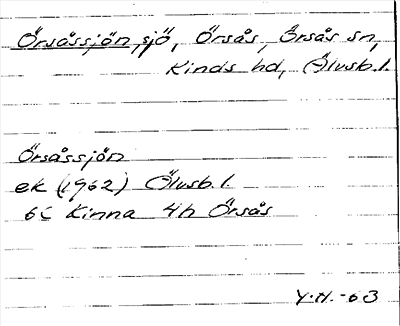 Örsåssjön, sjö, Örsås, Örsås sn,
Kinds hd, Älvsb. l.
Örsåssjön
ek (1962) Älvsb. l.
6C Kinna 4h Örsås
Y.H.-63